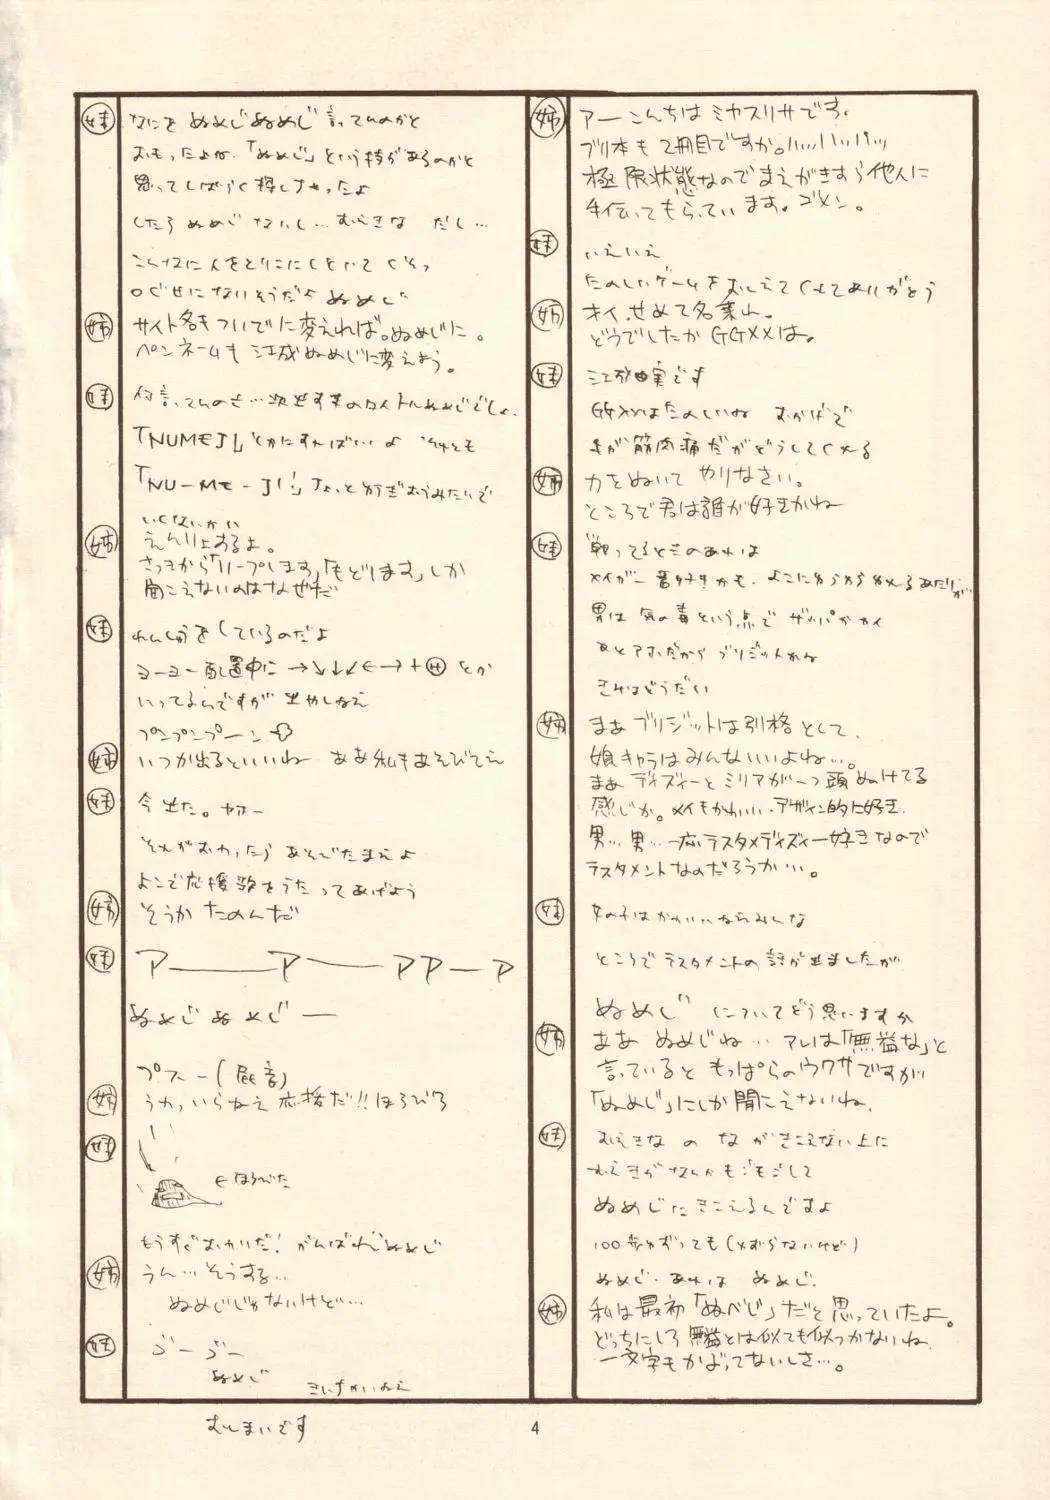 姉
アーこんちは ミヤスリサです。
ブリ本も2冊目ですか。ハッハッハッ
極限状態なのでまえがきすら他人に
手伝ってもらっています。ゴメン。
妹
いえいえ
たのしいゲームをおしえてくれてありがとう
姉
オイ、せめて名乗れ。
どうでしたかGGXXは。
妹
江成由実です
GGXXはたのしいね おかげで
筋肉痛だがどうしてくれる
姉
力をぬいて やりなさい。
ところで君は誰が好きかね
妹
戦ってるときのあれは
メイが一番好きかも、よこにわらわらかえるあたりが
男は 気の毒という点で ザッパかカイ
あとアホだから ブリジットかな
きみはどうだい
姉
まあ ブリジットは別格として、
娘キャラはみんないいよね…。
まあ ディズィーと ミリアが一つ頭ぬけてる
感じか。メイもかわいい。デザイン的に好き。
男…男…一応テスタメディズィー好きなので
テスタメントなのだろうか…。
妹
女の子はかわいいならみんな
ところでテスタメントの話が出ましたが
ぬめじ についてどう思いますか
姉
ああ ぬめじね… アレは「無益な」と
言っていると もっぱらのウワサですが
「ぬめじ」にしか聞こえないね。
妹
むえきな の な がきこえない上に
むえきがなんかもごもごして
ぬめじにきこえるんですよ
100歩ゆずっても(ゆずらないけど)
ぬめじ。あれは ぬめじ。
姉
私は最初「ぬべじ」だと思っていたよ。
どっちにしろ無益とは似ても似つかないね
一文字もかぶってないしさ…。
妹
なにを ぬめじぬめじ 言ってんのかと
おもったよね。「ぬめじ」という技があるのかと
思ってしばらく探しちゃったよ
したら ぬめじ ないし… むえきな だし…
こんなに人をとりこにしといて
口ぐせになりそうだよ ぬめじ
姉
サイト名もついでに変えれば。ぬめじに。
ペンネームも 江成ぬめじに変えよう。
妹
何言ってんのさ…次出す本のタイトルぬめじでしょ。
「NUMEJI」とかにすればいいよ それとも
「NU-ME-JI」ちょっと
いくないかい
姉
えんりょするよ。
さっきから「ループします」「もどします」しか
聞こえないのはなぜだ
妹
れんしゅうをしているのだよ
ヨーヨー配置中に →↘↓↙←→+Ⓗ とか
いってるんですが 出やしねえ
プンプンプーン
姉
いつか出るといいね ああ 私もあそびてえ
妹
今出た。ヤホー
それがおわったら あそびたまえよ
よこで応援歌をうたってあげよう
姉
そうか たのんだ
妹
アー――ア――アアーア
ぬめじ ぬめじー
プスー(屁音)
姉
うわっいらねえ応援だ!! ほろびろ
妹
←ほろびた
もうすぐおわりだ! がんばれぬめじ
姉
うん…そうする…
ぬめじじゃないけど…
妹
ぶーぶー
ぬめじ
おしまいです
4